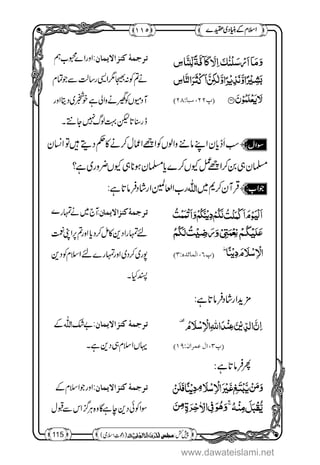 اسلام کے بنیادی عقیدے (۱۱۵)
وَمَاۤ اَرْسَلْنٰكَ اِلَّا كَآفَّةً لِّلنَّاسِ
بَشِیْرًا وَّ نَذِیْرًا وَّ لٰكِنَّ اَكْثَرَ النَّاسِ
لَا یَعْلَمُوْنَ
(پ۲۲، سبا:۲۸)
ترجمۂ کنز الایمان: اور اے محبوب ہم
نے تم کو نہ بھیجا مگر ایسی رسالت سے جو تمام
آدمیوں کو گھیرنے والی ہے خوشخبری دیتا اور
ڈر سناتا لیکن بہت لوگ نہیں جانتے۔
سوال
مسلمان ہی بن کر
جواب قرآن کریم میں اللہ رب العالمین ارشاد فرماتا ہے:
اَلْیَوْمَ اَكْمَلْتُ لَكُمْ دِیْنَكُمْ وَ اَتْمَمْتُ
عَلَیْكُمْ نِعْمَتِیْ وَ رَضِیْتُ لَكُمُ
الْاِسْلَامَ دِیْنًا
(پ۶، المائدہ:۳)
ترجمۂ کنز الایمان: آج میں نے تمہارے
لئے تمہارا دین کامل کر دیا اور تم پر اپنی نعمت
پوری کر دی اور تمہارے لئے اسلام کو دین
پسند کیا۔
مزید ارشاد فرماتا ہے:
اِنَّ الدِّیْنَ عِنْدَ اللّٰهِ الْاِسْلَامُ
(پ۳، اٰل عمران:۱۹)
ترجمۂ کنز الایمان: بے شک اللہ کے
یہاں اسلام ہی دین ہے۔
پھر فرماتا ہے:
وَ مَنْ یَّبْتَغِ غَیْرَ الْاِسْلَامِ دِیْنًا فَلَنْ
یُّقْبَلَ مِنْهُ وَ هُوَ فِی الْاٰخِرَةِ مِنَ
ترجمۂ کنز الایمان: اور جو اسلام کے
سوا کوئی دین چاہے گا وہ ہرگز اس سے قبول
115
(دعوتِ اسلامی)
پیش کش:
www.dawateislami.net